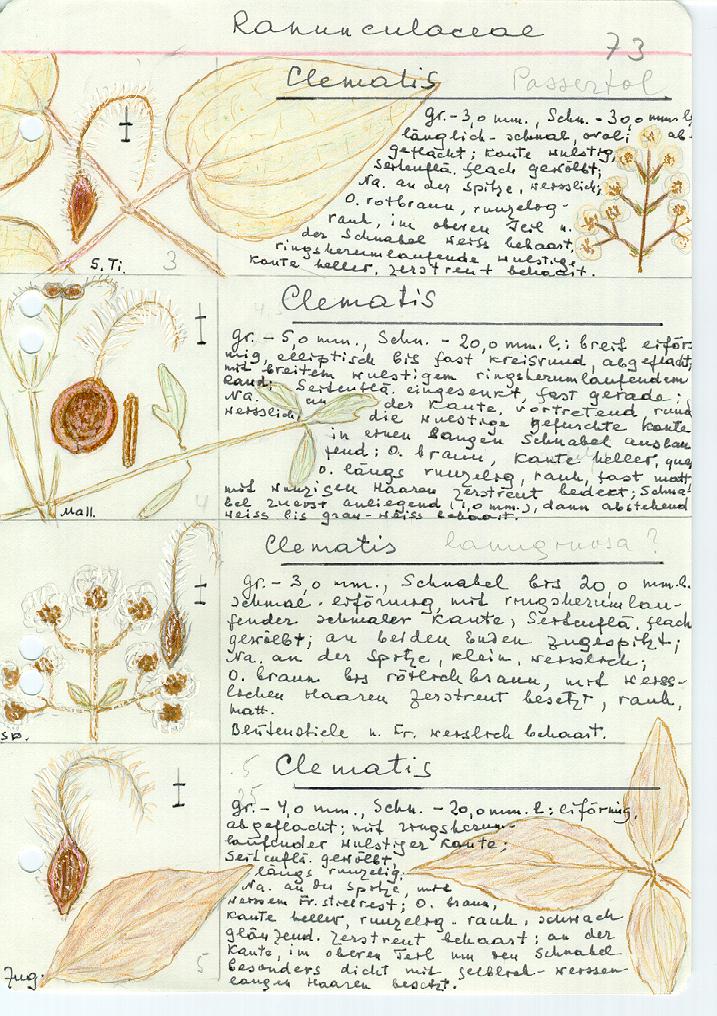 Ranunculaceae
73
Clematis Passertal
Gr.-3,0 mm., Schn. -30,0 mm.l;
länglich-schmal, oval; ab-
geflacht; Kante wulstig,
Seitenflä. flach gewölbt;
Na. an der Spitze, weisslich;
O. rotbraun, runzelig-
rauh, im oberen Teil u.
der Schnabel weiss behaart,
ringsherumlaufende wulstige
Kante heller, zerstreut behaart.
S.Ti. 3
Clematis
Gr. - 5,0 mm., Schn. - 20,0 mm.l; breit eiför-
mig, elliptisch bis fast kreisrund, abgeflacht,
mit breitem wulstigem ringsherumlaufendem
Rand; Seitenflä. eingesenkt, fast gerade;
Na. an der Kante, vortretend, rund
weisslich; die wulstige gefurchte Kante
in einen langen Schnabel auslau-
fend; O. braun, Kante heller, quer
O. längs runzelig, rauh, fast matt
mit winzigen Haaren zerstreut bedekt; Schna-
bel zuerst anliegend (1,0 mm.), dann abstehend
weiss bis grau-weiss behaart.
Mall. 4
Clematis lanuginosa?
Gr.-3,0 mm., Schnabel bis 20,0 mm.l.
schmal-eiförmig, mit ringsherumlau-
fender schmaler Kante; Seitenflä. flach
gewölbt; an beiden Enden zugespitzt;
Na. an der Spitze, klein, weisslich;
O. braun bis rötlichbraun, mit weiss-
lichen Haaren zerstreut besetzt, rauh,
matt.
Blütenstiele u. Fr. weisslich behaart.
Sp.
Clematis
Gr.-4,0 mm., Schn. -20,0 mm.l; eiförmig,
abgeflacht; mit ringsherum-
laufender wulstiger Kante;
Seitenflä. gewölbt,
längs runzelig;
Na. an der Spitze, mit
weissem Fr.stielrest; O. braun,
Kante heller, runzelig-rauh, schwach
glänzend. Zerstreut behaart; an der
Kante, im oberen Teil um den Schnabel
besonders dicht mit gelblich-weissen
langen Haaren besetzt.
Zug. 5